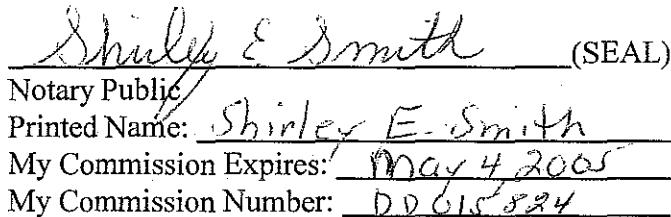 Shirley E Smith (SEAL)
Notary Public
Printed Name: Shirley E. Smith
My Commission Expires: May 4 2005
My Commission Number: DD015824